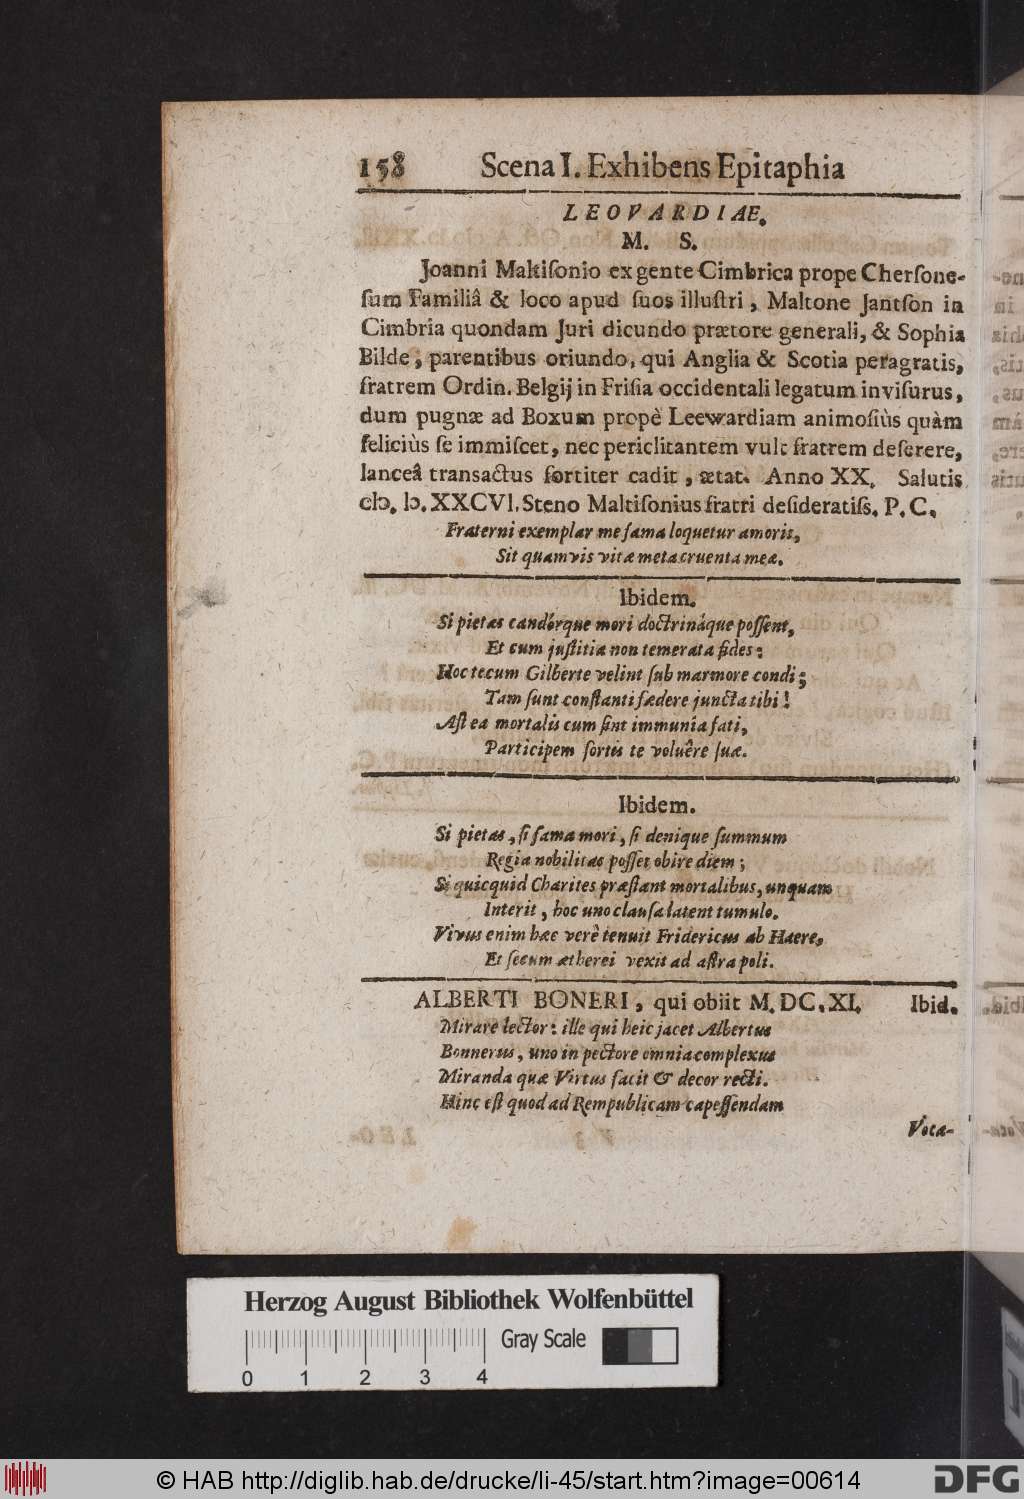 158 Scena I. Exhibens Epitaphia
LEOVARDIAE.
M. S.
Joanni Makiſonio ex gente Cimbrica prope Cherſone-
ſum Familiâ & loco apud ſuos illuſtri, Maltone Jantſon in
Cimbria quondam Juri dicundo prætore generali, & Sophia
Bilde, parentibus oriundo, qui Anglia & Scotia peragratis,
fratrem Ordin. Belgij in Friſia occidentali legatum inviſurus,
dum pugnæ ad Boxum propè Leewardiam animoſiùs quàm
feliciùs ſe immiſcet, nec periclitantem vult fratrem deſerere,
lanceâ transactus fortiter cadit, ætat. Anno XX. Salutis
cIɔ. Iɔ. XXCVI. Steno Maltiſonius fratri deſideratiſs. P. C.
Fraterni exemplar me fama loquetur amoris,
Sit quamvis vitæ meta cruenta meæ.
Ibidem.
Si pietas candórque mori doctrináque poſſent,
Et cum juſtitia non temerata fides:
Hoc tecum Gilberte velint ſub marmore condi;
Tam ſunt conſtanti fædere juncta tibi!
Aſt ea mortalis cum ſint immunia fati,
Participem ſortis te voluêre ſuæ.
Ibidem.
Si pietas, ſi fama mori, ſi denique ſummum
Regia nobilitas poſſet obire diem;
Si quicquid Charites præſtant mortalibus, unquam
Interit, hoc uno clauſa latent tumulo.
Vivus enim hæc verè tenuit Fridericus ab Haere,
Et ſecum ætherei vexit ad aſtra poli.
ALBERTI BONERI, qui obiit M. DC. XI. Ibid.
Mirare lector: ille qui heic jacet Albertus
Bonnerus, uno in pectore omnia complexus
Miranda quæ Virtus facit & decor recti.
Hinc eſt quod ad Rempublicam capeſſendam
Voca-
Herzog August Bibliothek Wolfenbüttel
Gray Scale
0 1 2 3 4
© HAB http://diglib.hab.de/drucke/li-45/start.htm?image=00614
DFG